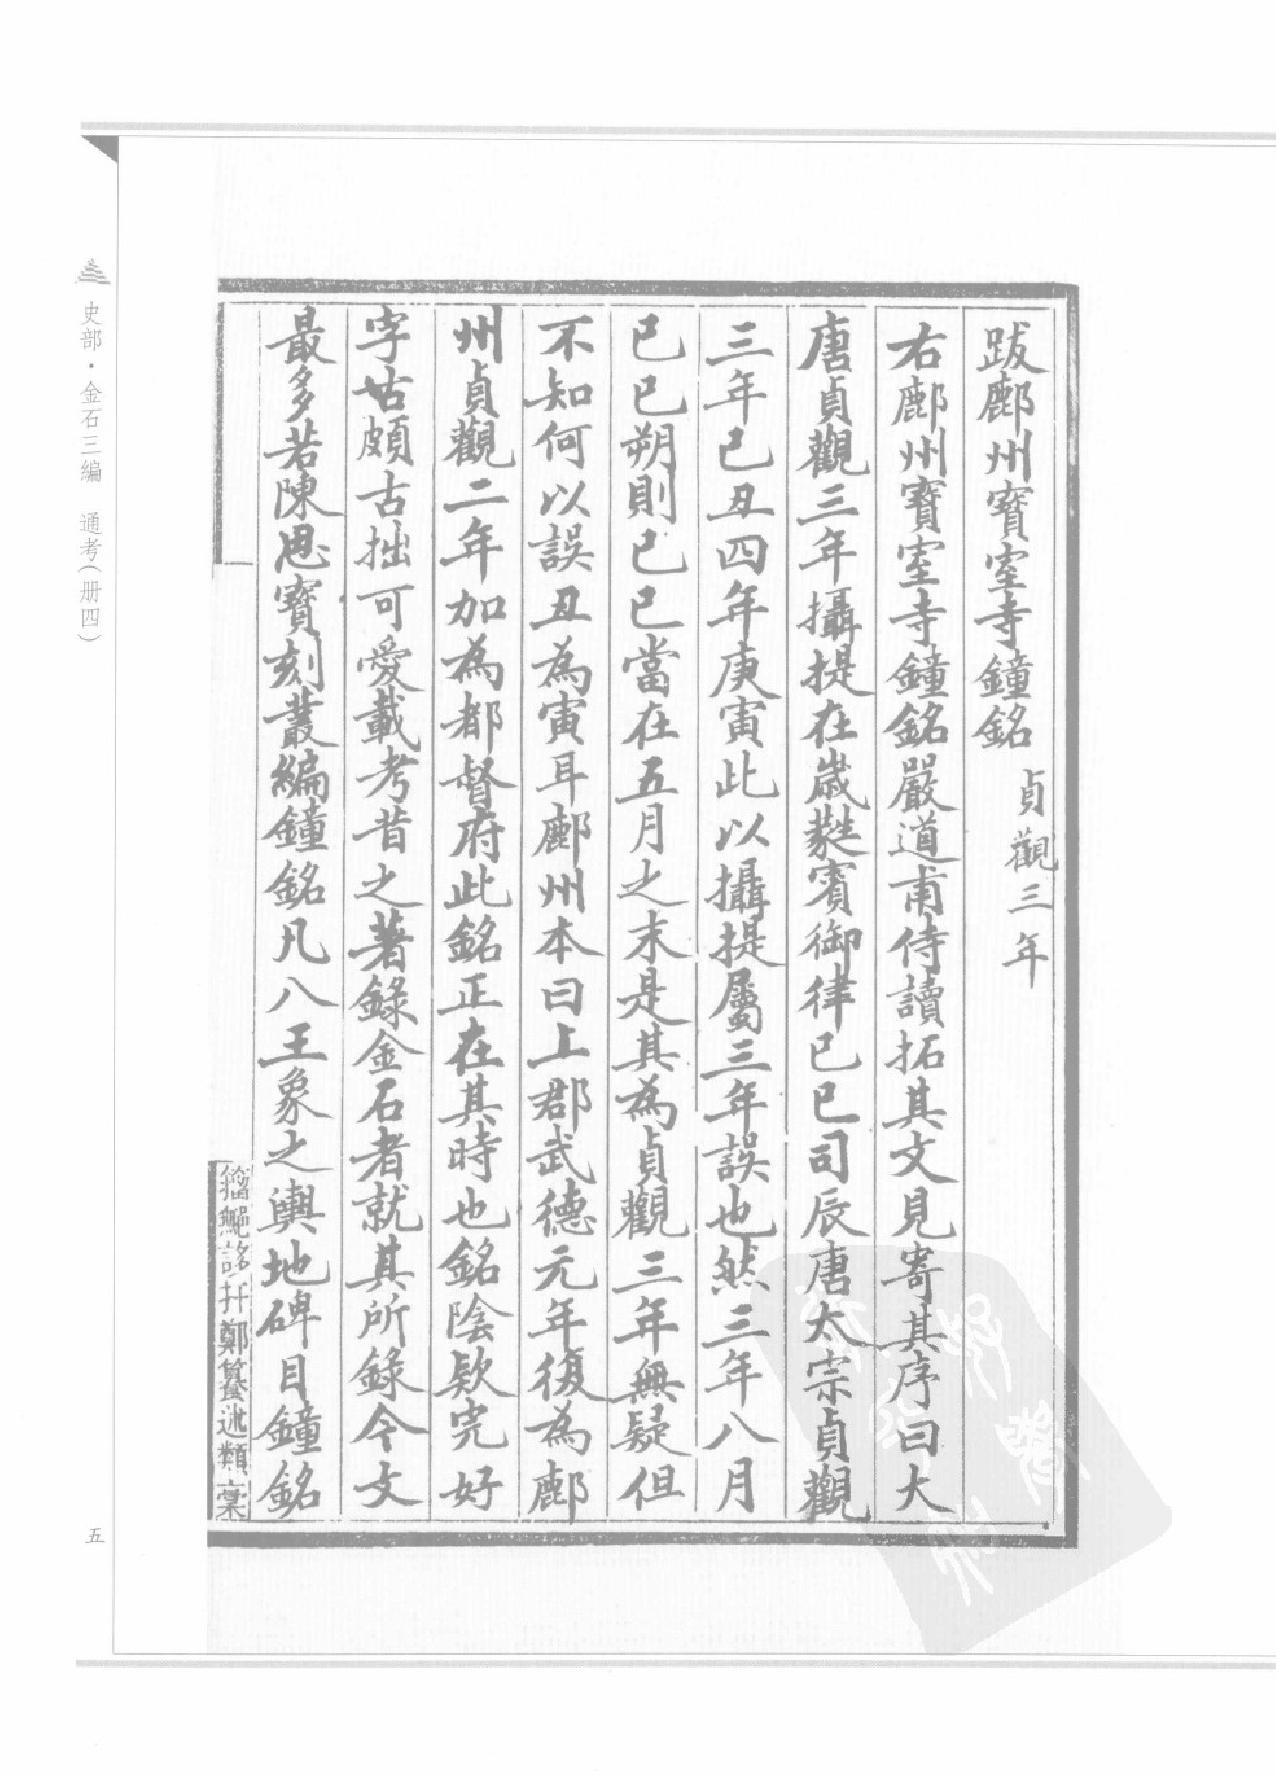 跋鄜州寳室寺鐘銘 貞觀三年
右鄜州寳室寺鐘銘嚴道甫侍讀拓其文見寄其序曰大
唐貞觀三年攝提在歳蕤賓御律已巳司辰唐太宗貞觀
三年已丑四年庚寅此以攝提屬三年誤也然三年八月
已巳朔則已巳當在五月之末是其為貞觀三年無疑但
不知何以誤丑為寅耳鄜州本曰上郡武德元年復為鄜
州貞觀二年加為都督府此銘正在其時也銘陰欵完好
字昔頗古拙可愛載考昔之著錄金石者就其所錄今文
最多若陳思寳刻叢編鐘銘凡八王象之輿地碑目鐘銘
鄭簋述類稾
史部·金石三編 通考(册四)
五